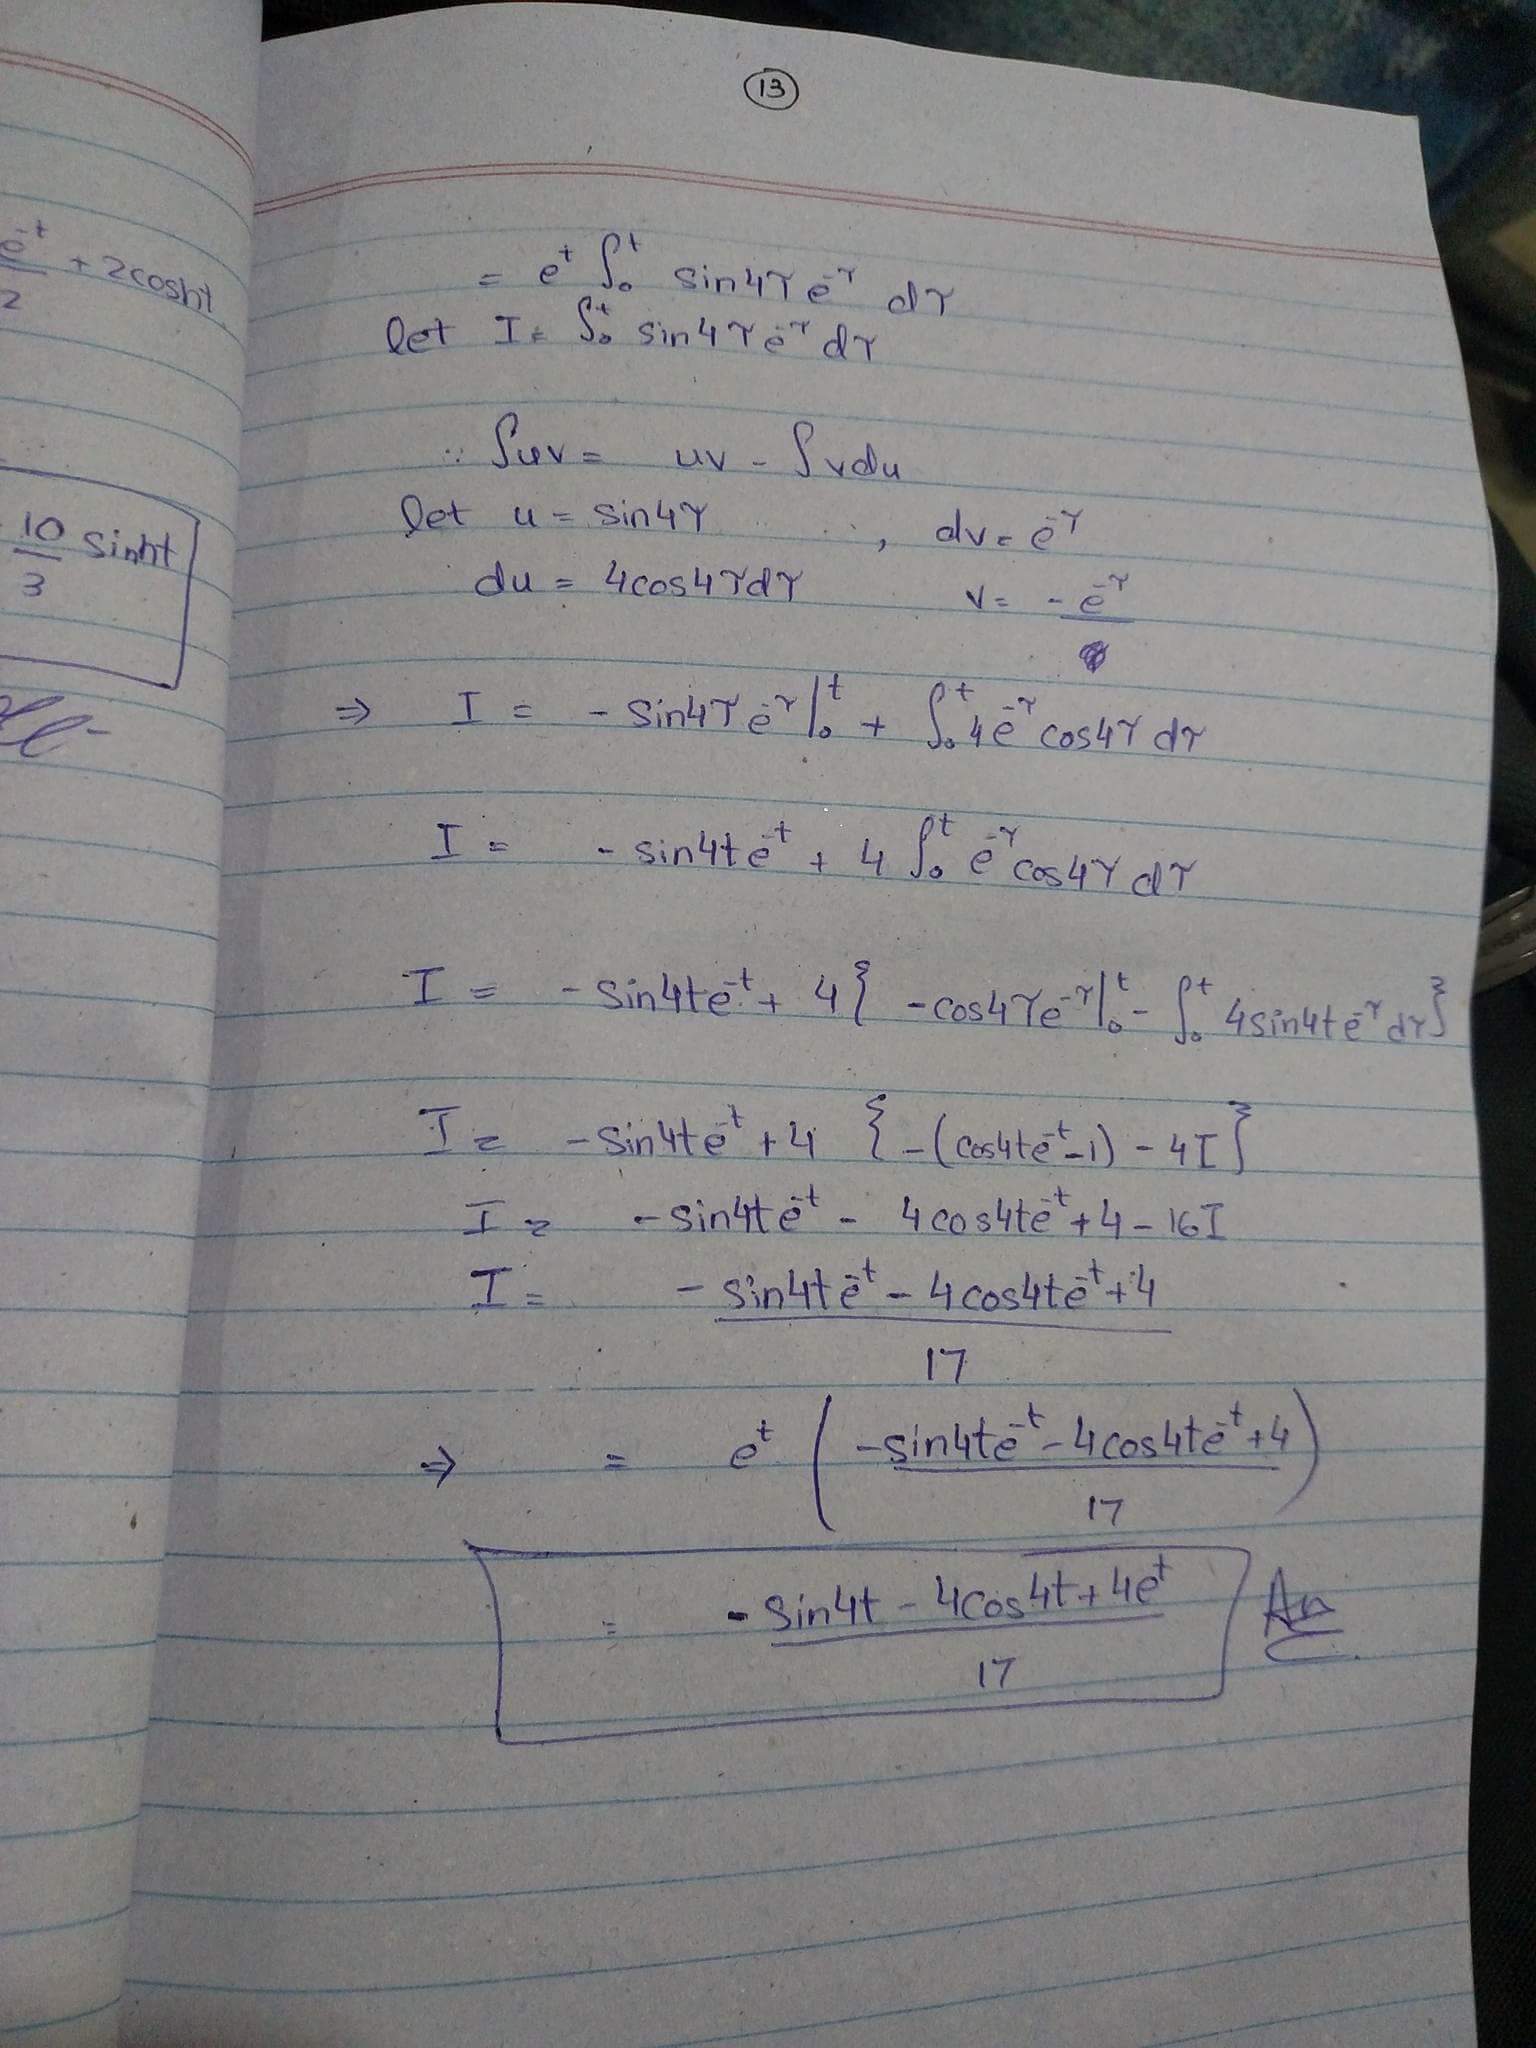 13
e⁻ᵗ/2 + 2cosht
10/3 sinht
= eᵗ ∫₀ᵗ sin4τ e⁻ᵞ dτ
let I = ∫₀ᵗ sin4τ e⁻ᵞ dτ
∵ ∫uv = uv - ∫vdu
let u = sin4τ , dv = e⁻ᵞ
du = 4cos4τdτ v = -e⁻ᵞ
⇒ I = -sin4τ e⁻ᵞ|₀ᵗ + ∫₀ᵗ 4e⁻ᵞ cos4τ dτ
I = -sin4te⁻ᵗ + 4 ∫₀ᵗ e⁻ᵞ cos4τ dτ
I = -sin4te⁻ᵗ + 4{ -cos4τe⁻ᵞ|₀ᵗ - ∫₀ᵗ 4sin4te⁻ᵞ dτ}
I = -sin4te⁻ᵗ + 4 {-(cos4te⁻ᵗ-1) - 4I}
I = -sin4te⁻ᵗ - 4cos4te⁻ᵗ + 4 - 16I
I = -sin4te⁻ᵗ - 4cos4te⁻ᵗ + 4
17
⇒ = eᵗ (-sin4te⁻ᵗ - 4cos4te⁻ᵗ + 4)
17
= -sin4t - 4cos4t + 4eᵗ An
17